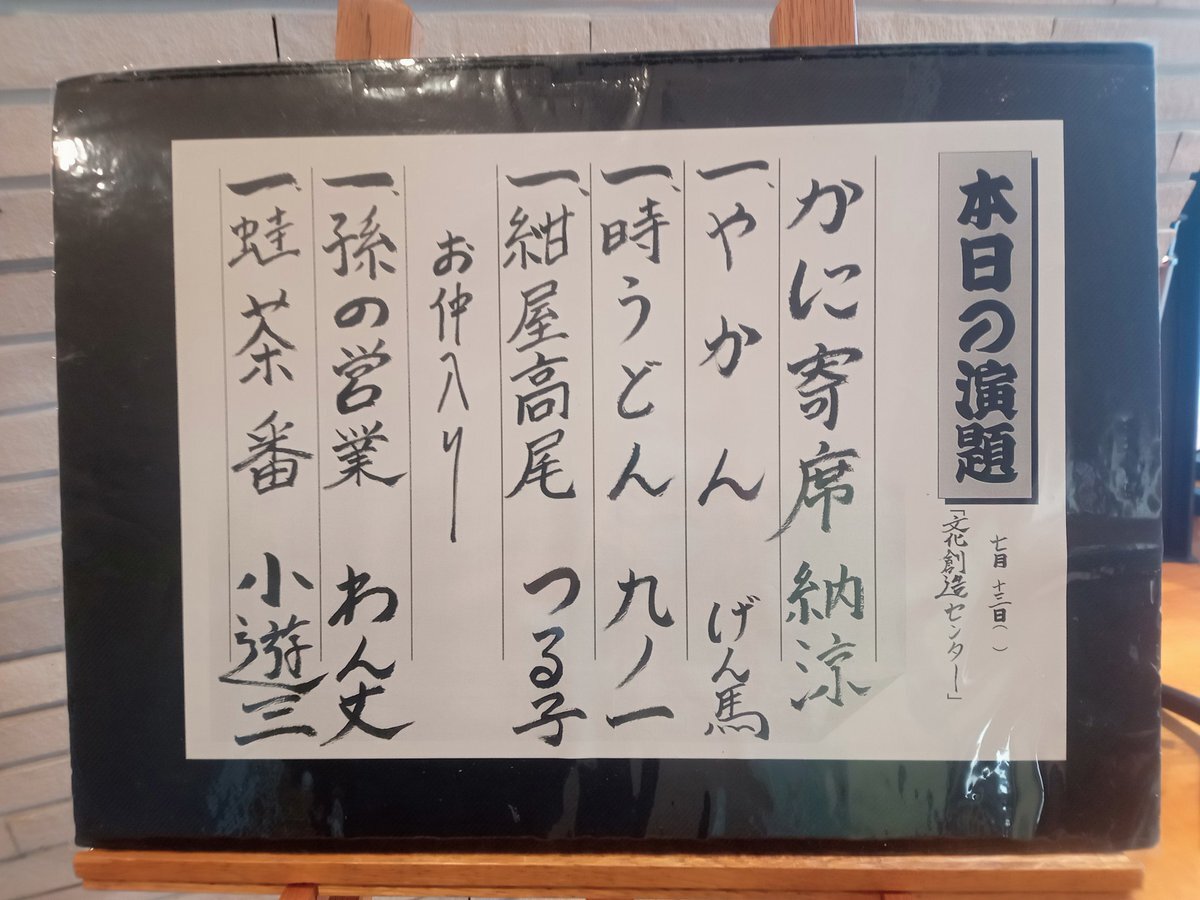 本日の演題
七月 十三日( )
「文化創造センター」
かに寄席 納涼
一、やかん げん馬
一、時うどん 九ノ一
一、紺屋高尾 つる子
お仲入り
一、孫の営業 わん丈
一、蛙茶番 小遊三